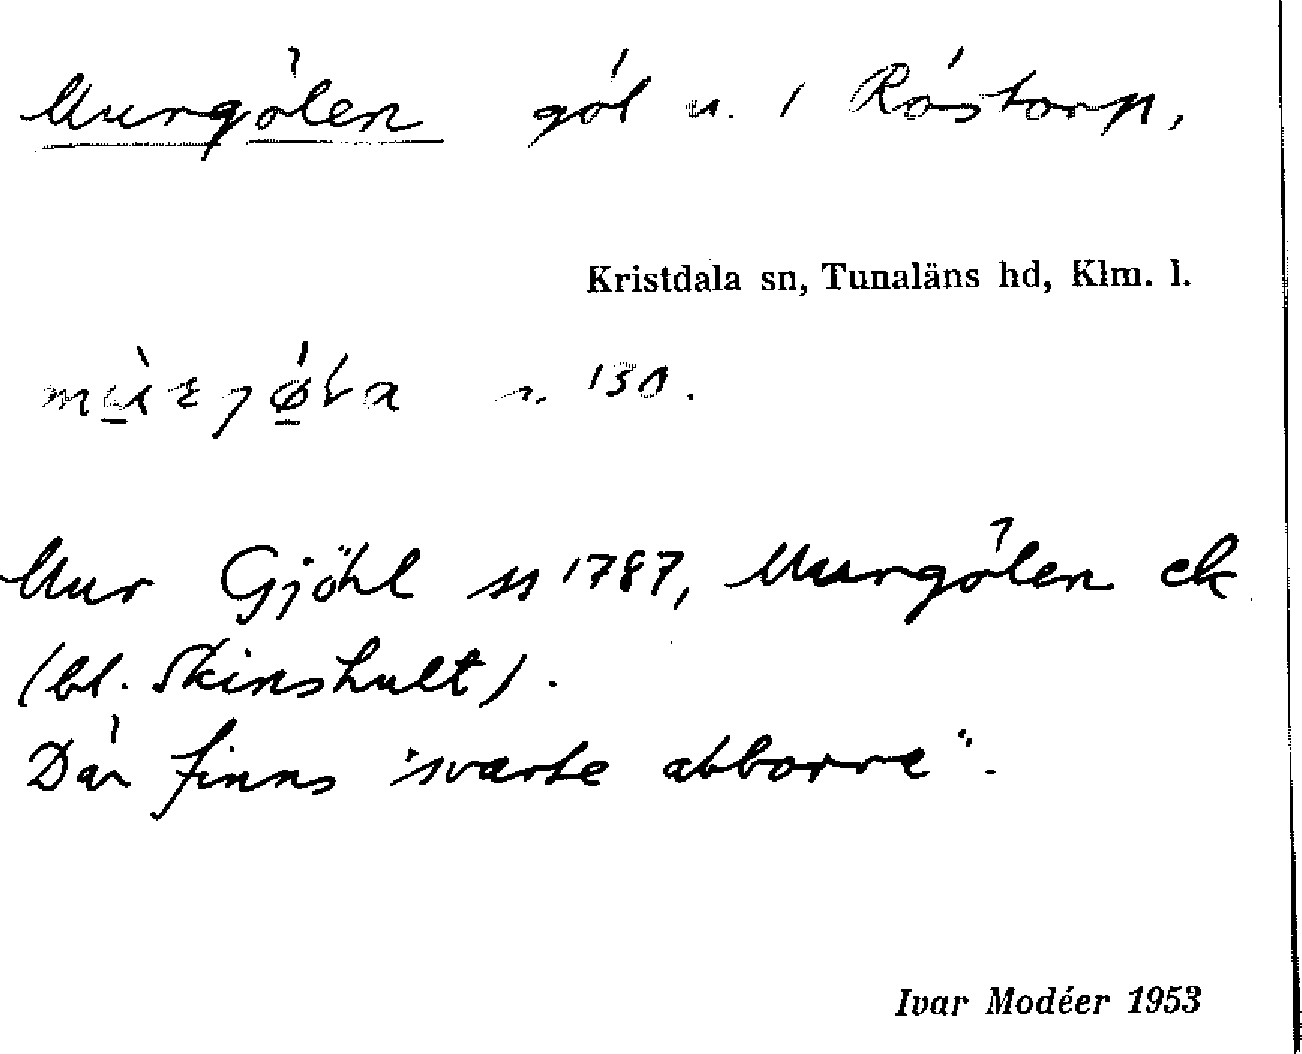 Murgölen göl u. i Röstorp,
Kristdala sn, Tunaläns hd, Klm. l.
Mur Gjöhl ss 1787, Murgölen ek
(bl. Skinshult).
Där finns "svarte abborre".
Ivar Modéer 1953